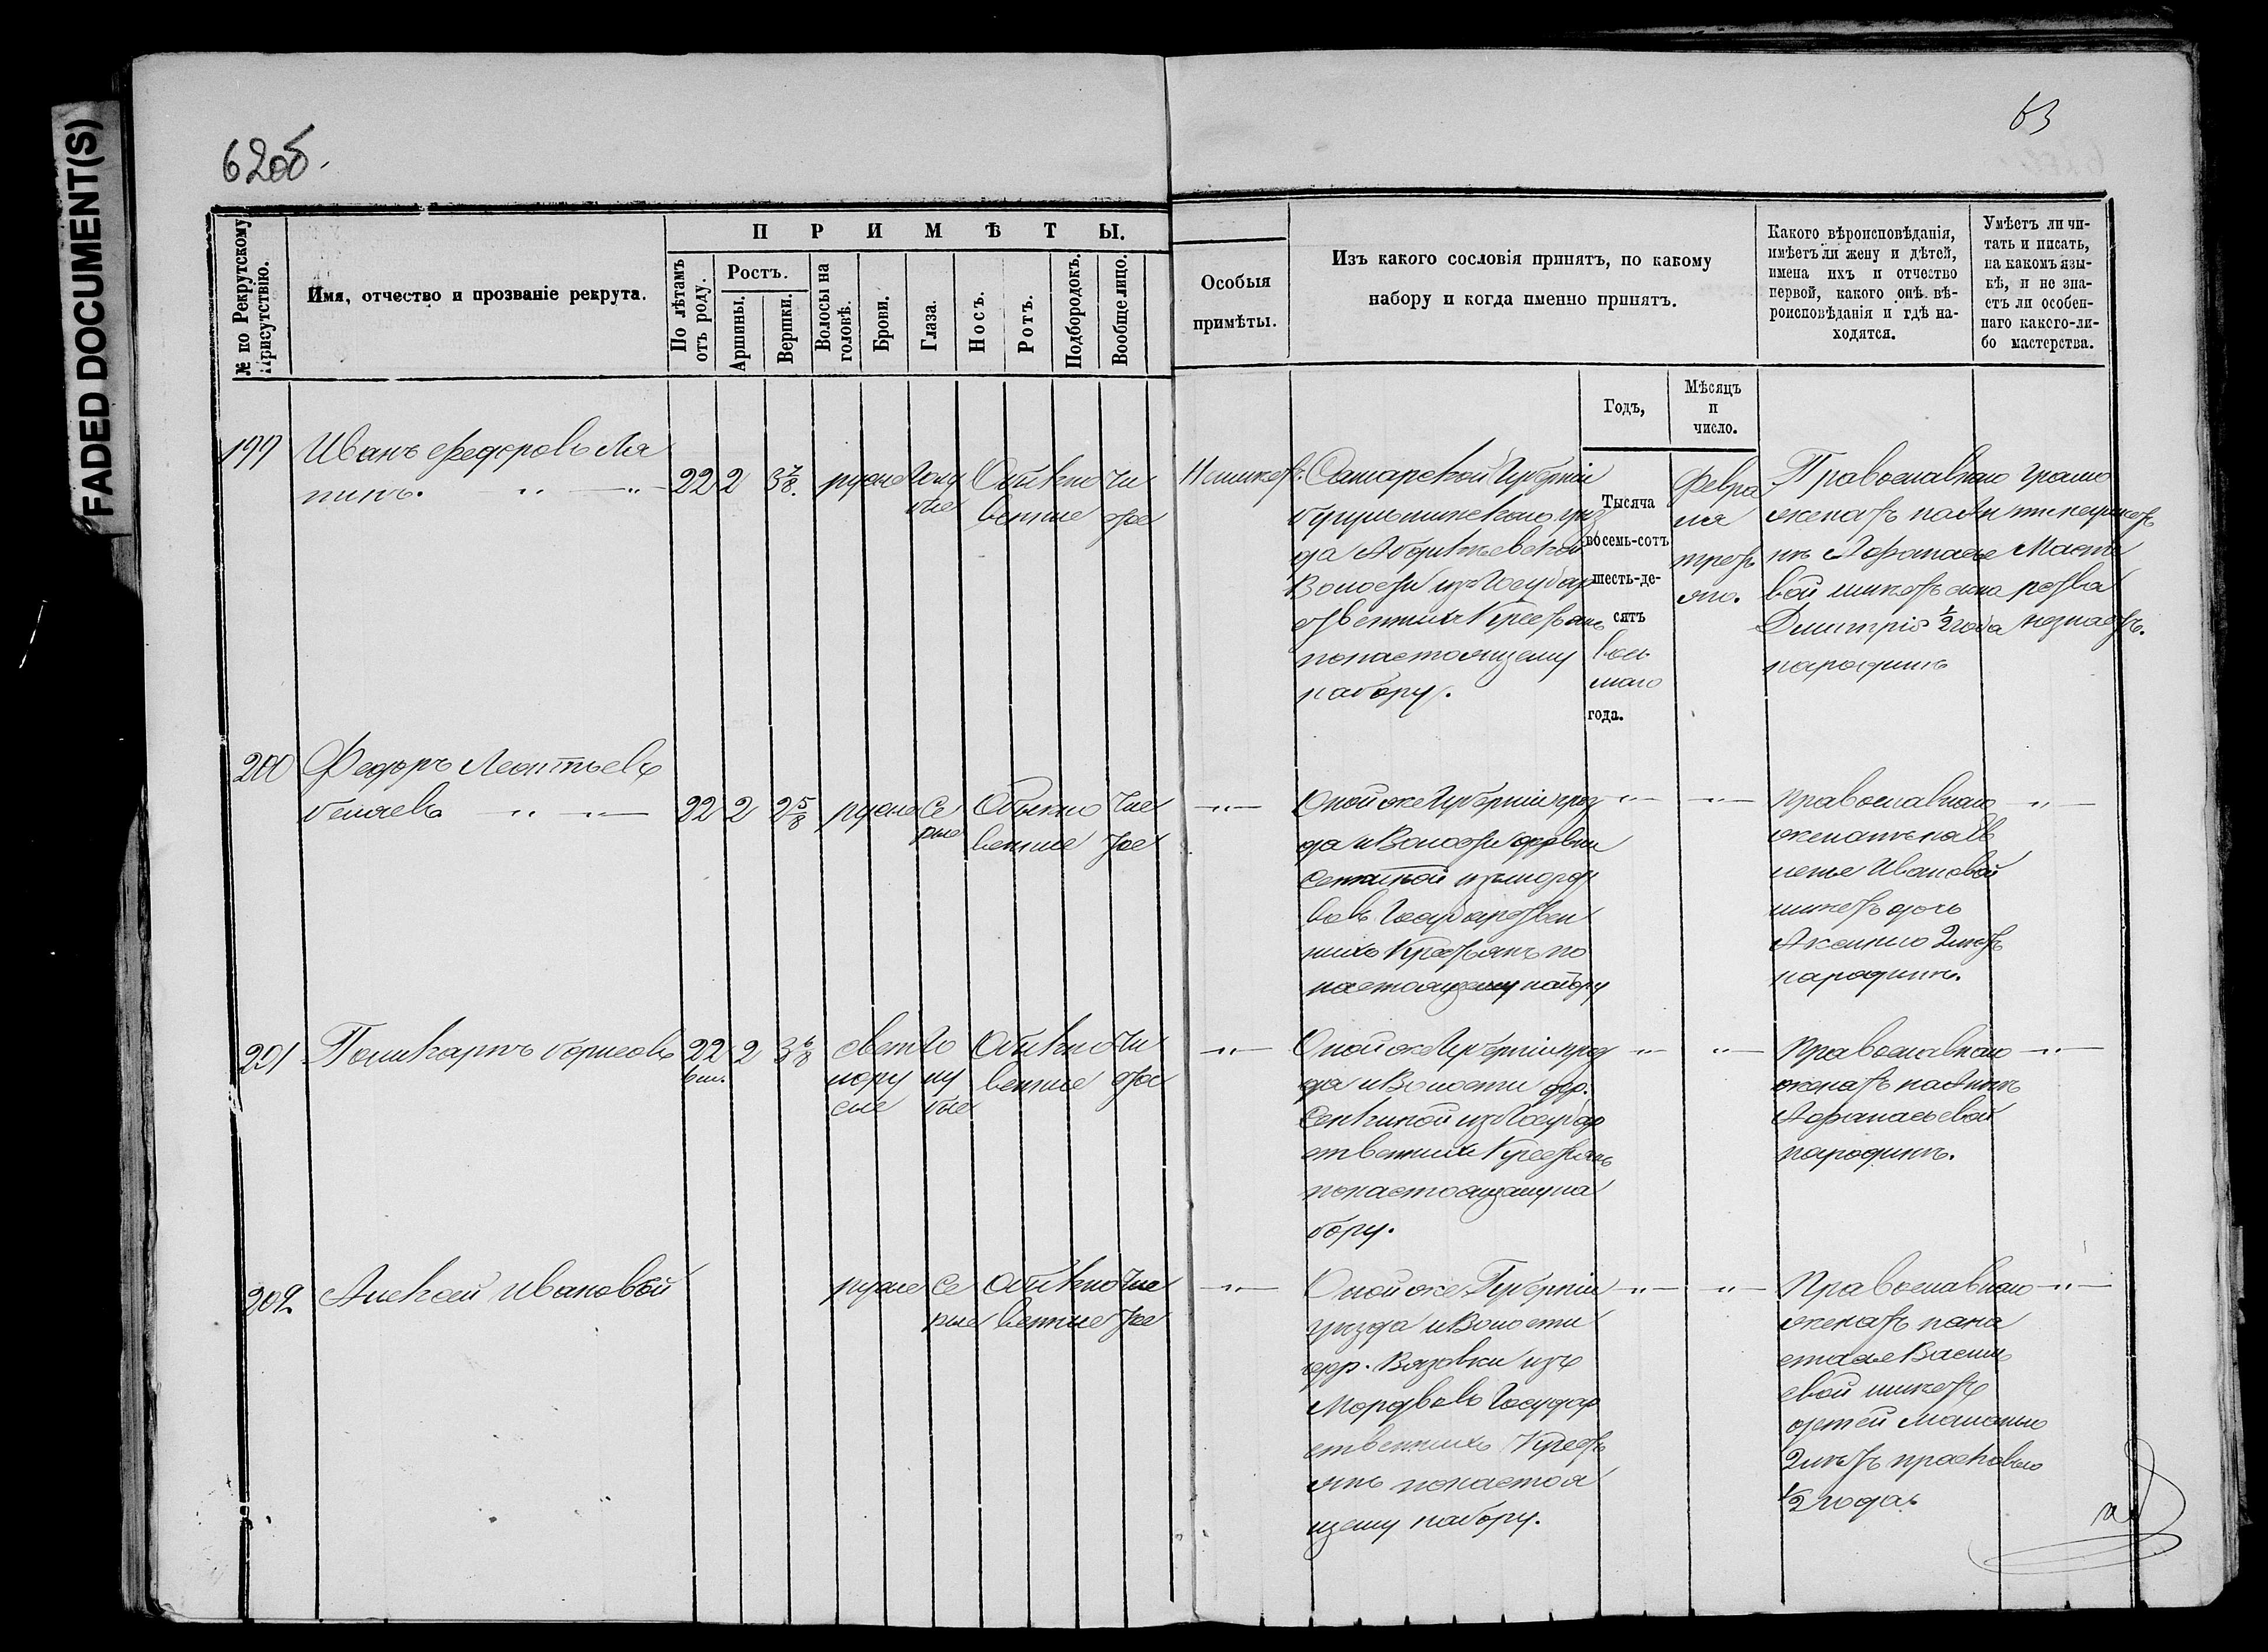 FADED DOCUMENT(S)
62об.
63
№ по Рекрутскому Присутствію.
Имя, отчество и прозваніе рекрута.
ПРИМѢТЫ.
По лѣтамъ отъ роду.
Ростъ.
Аршины.
Вершки.
Волосы на головѣ.
Брови.
Глаза.
Носъ.
Ротъ.
Подбородокъ.
Вообще лицо.
Особыя
примѣты.
Изъ какого сословія принятъ, по какому
набору и когда именно принятъ.
Какого вѣроисповѣданія,
имѣетъ ли жену и дѣтей,
имена ихъ и отчество
первой, какого онѣ вѣ-
роисповѣданія и гдѣ на-
ходятся.
Умѣетъ ли чи-
тать и писать,
на какомъ язы-
кѣ, и не зна-
етъ ли особен-
наго какого-ли-
бо мастерства.
Годъ,
Мѣсяцъ
и
число.
199
Иванъ Федоровъ Ля
пинъ. " — "
22 2 3 7/8. русые Голу
бые
Обыкно
венные
Чи
стое
Неимѣетъ.
Самарской Губерніи
бугульминскаго уѣз
да
Волости изъ Государ
ственныхъ Крестьянъ
понастоящему
набору.
Тысяча
восемь-сотъ
шесть-де-
сятъ
вось
маго
года.
Февра
ля
треть
яго.
Православнаго
женатъ
Афанасье
вой имѣетъ сына
Дмитрія 1/2 года
народинѣ
грамо
тѣ неумѣетъ
Масте
рства
незнаетъ.
200
Федоръ Леонтьевъ
беляевъ " — " —
22 2 2 5/8 русые Се
рые
Обыкно
венные
Чис
тое
— " —
Оной же Губерніи уѣз
да и Волости деревни
Сенкиной измордв
вовъ Государствен
ныхъ Крестьянъ по
настоящему набору
— " —
— " —
Православнаго
женатъ на
Ивановой
имѣетъ дочь
Аксинью 2 летъ
народинѣ.
— " —
201
Поликарпъ борисовъ
22 2 3 6/8
светло
ру
сые
Го
лу
бые
Обыкно
венные
Чи
стое
— " —
Оной же Губерніи уѣз
да и Волости дер.
Сенкиной из Государ
ственныхъ Крестьянъ
понастоящему на
бору.
— " —
— " —
Православнаго
женатъ на Аннѣ
Афанасьевой
народинѣ.
— " —
202
Алексей Ивановой
русые Се
рые
Обыкно
венные
Чис
тое
— " —
Оной же Губерніи
уѣзда и Волости
дер. Вязовки изъ
Мордвовъ Государ
ственныхъ Кресть
янъ понастоя
щему набору.
— " —
— " —
Православнаго
женатъ нана
стасье Василь
евой имѣетъ
детей Маланью
2 летъ прасковью
1/2 года.
— " —